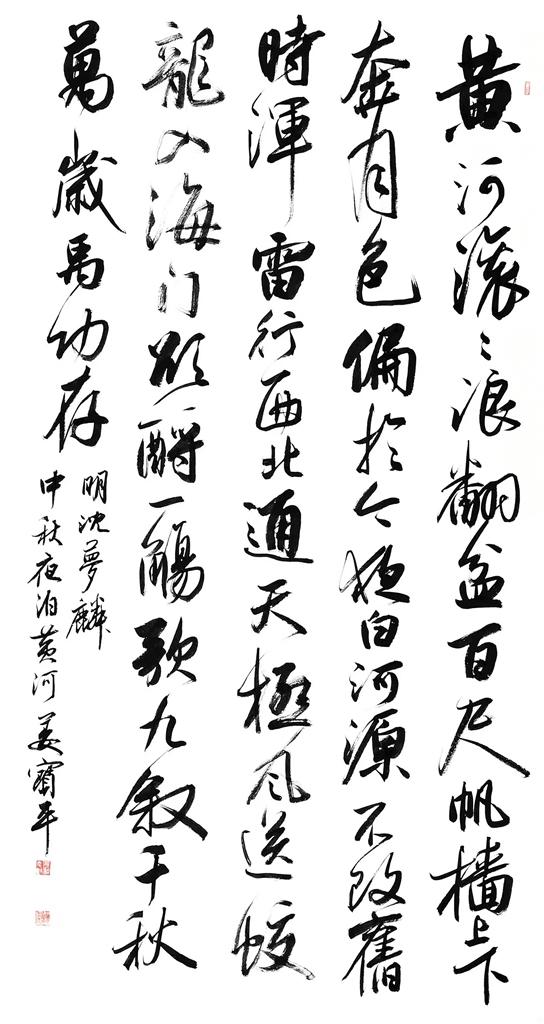 黄河滚々浪翻盆百尺帆檣上下
奔月色偏於今夜白河源不改舊
時渾雷行西北通天極風送蛟
龍入海门欲酹一觴歌九叙千秋
萬歲馬功存
明沈夢麟
中秋夜泊黄河 姜平